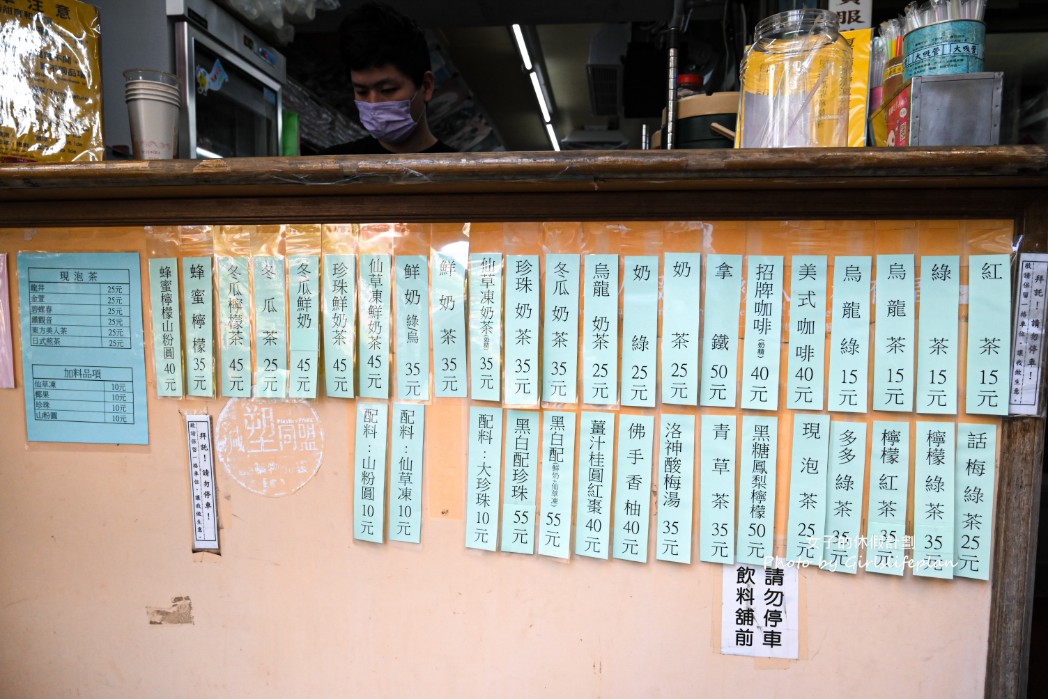 現泡茶
龍井 25元
金萱 25元
碧螺春 25元
鐵觀音 25元
東方美人茶 25元
日式煎茶 25元
加料品項
仙草凍 10元
椰果 10元
珍珠 10元
山粉圓 10元
紅茶 15元
綠茶 15元
烏龍茶 15元
烏龍綠 15元
美式咖啡 40元
招牌咖啡(奶精) 40元
拿鐵 50元
奶茶 25元
奶綠 25元
烏龍奶茶 25元
冬瓜奶茶 35元
珍珠奶茶 35元
仙草凍奶茶 35元
鮮奶茶 35元
鮮奶綠烏 35元
仙草凍鮮奶茶 45元
珍珠鮮奶茶 45元
冬瓜鮮奶 45元
冬瓜茶 25元
冬瓜檸檬茶 45元
蜂蜜檸檬 35元
蜂蜜檸檬山粉圓 40元
話梅綠茶 25元
檸檬綠茶 35元
檸檬紅茶 35元
多多綠茶 35元
現泡茶 25元
黑糖鳳梨檸檬 50元
青草茶 35元
洛神酸梅湯 35元
佛手香柚 40元
薑汁桂圓紅棗 40元
黑白配(鮮奶+仙草凍) 55元
黑白配珍珠 55元
配料:大珍珠 10元
配料:仙草凍 10元
配料:山粉圓 10元
拜託!請勿停車!
拜託!請勿停車!
請勿停車
飲料舖前
大吸管
大吸管
女子的休假計劃
Photo by Girlslifeplan